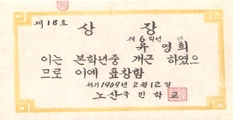 제18호
상장
제6학년 반
유영희
이는 본학년중 개근 하였으
므로 이에 표창함
서기1969년 2월12일
노산국민학교